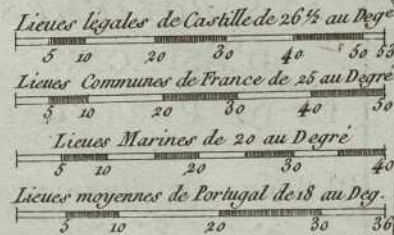 Lieues légales de Castille de 26 ½ au Degé
5 10 20 30 40 50 53
Lieues Communes de France de 25 au Degré
5 10 20 30 40 50
Lieues Marines de 20 au Degré
5 10 20 30 40
Lieues moyennes de Portugal de 18 au Deg.
5 10 20 30 36